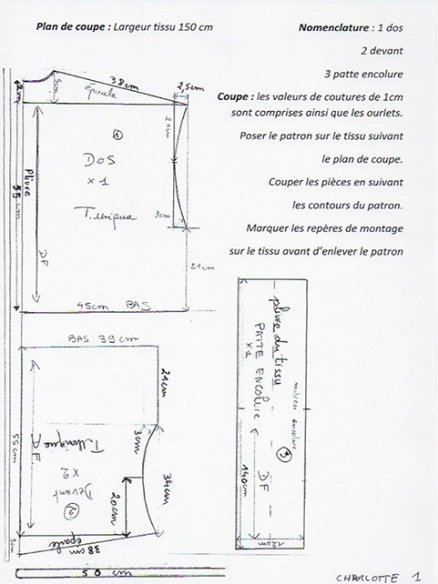 Plan de coupe : Largeur tissu 150 cm
Nomenclature : 1 dos
2 devant
3 patte encolure
Coupe : les valeurs de coutures de 1cm
sont comprises ainsi que les ourlets.
Poser le patron sur le tissu suivant
le plan de coupe.
Couper les pièces en suivant
les contours du patron.
Marquer les repères de montage
sur le tissu avant d'enlever le patron
38cm
épaule
2,5cm
5cm
2m
①
Dos
x1
T.unique
Pliure
55 cm
DF
3cm
21cm
45cm BAS
BAS 39cm
21cm
3cm
34cm
20cm
T.Unique
x2
Devant
②
DF
55cm
5cm
épaule
38cm
50cm
pliure du tissu
PATTE ENCOLURE
x1
milieu encolure
③
DF
140cm
12cm
CHARLOTTE 1